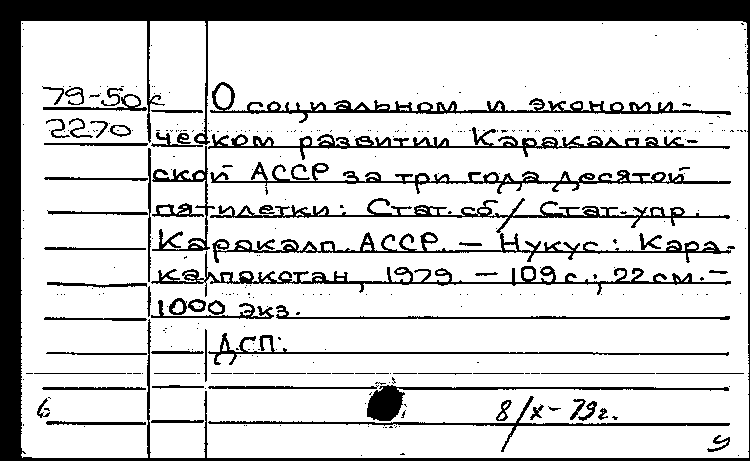 79-50с О социальном и экономи-
2270 ческом развитии Каракалпак-
ской АССР за три года десятой
пятилетки: Стат. сб. / Стат. упр.
Каракалп. АССР. — Нукус: Кара-
калпакстан, 1979. — 109 с.; 22 см. —
1000 экз.
ДСП.
6 8/X-79г.
у